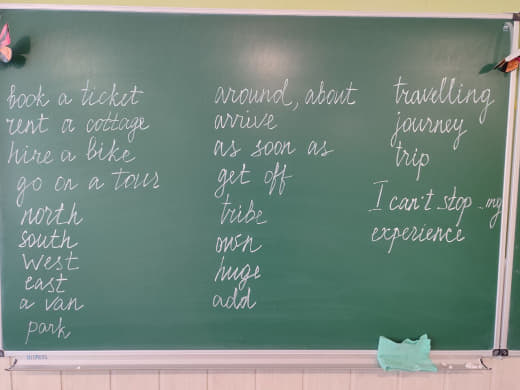 book a ticket
rent a cottage
hire a bike
go on a tour
north
south
west
east
a van
park
around, about
arrive
as soon as
get off
tribe
own
huge
add
travelling
journey
trip
I can't stop my
experience